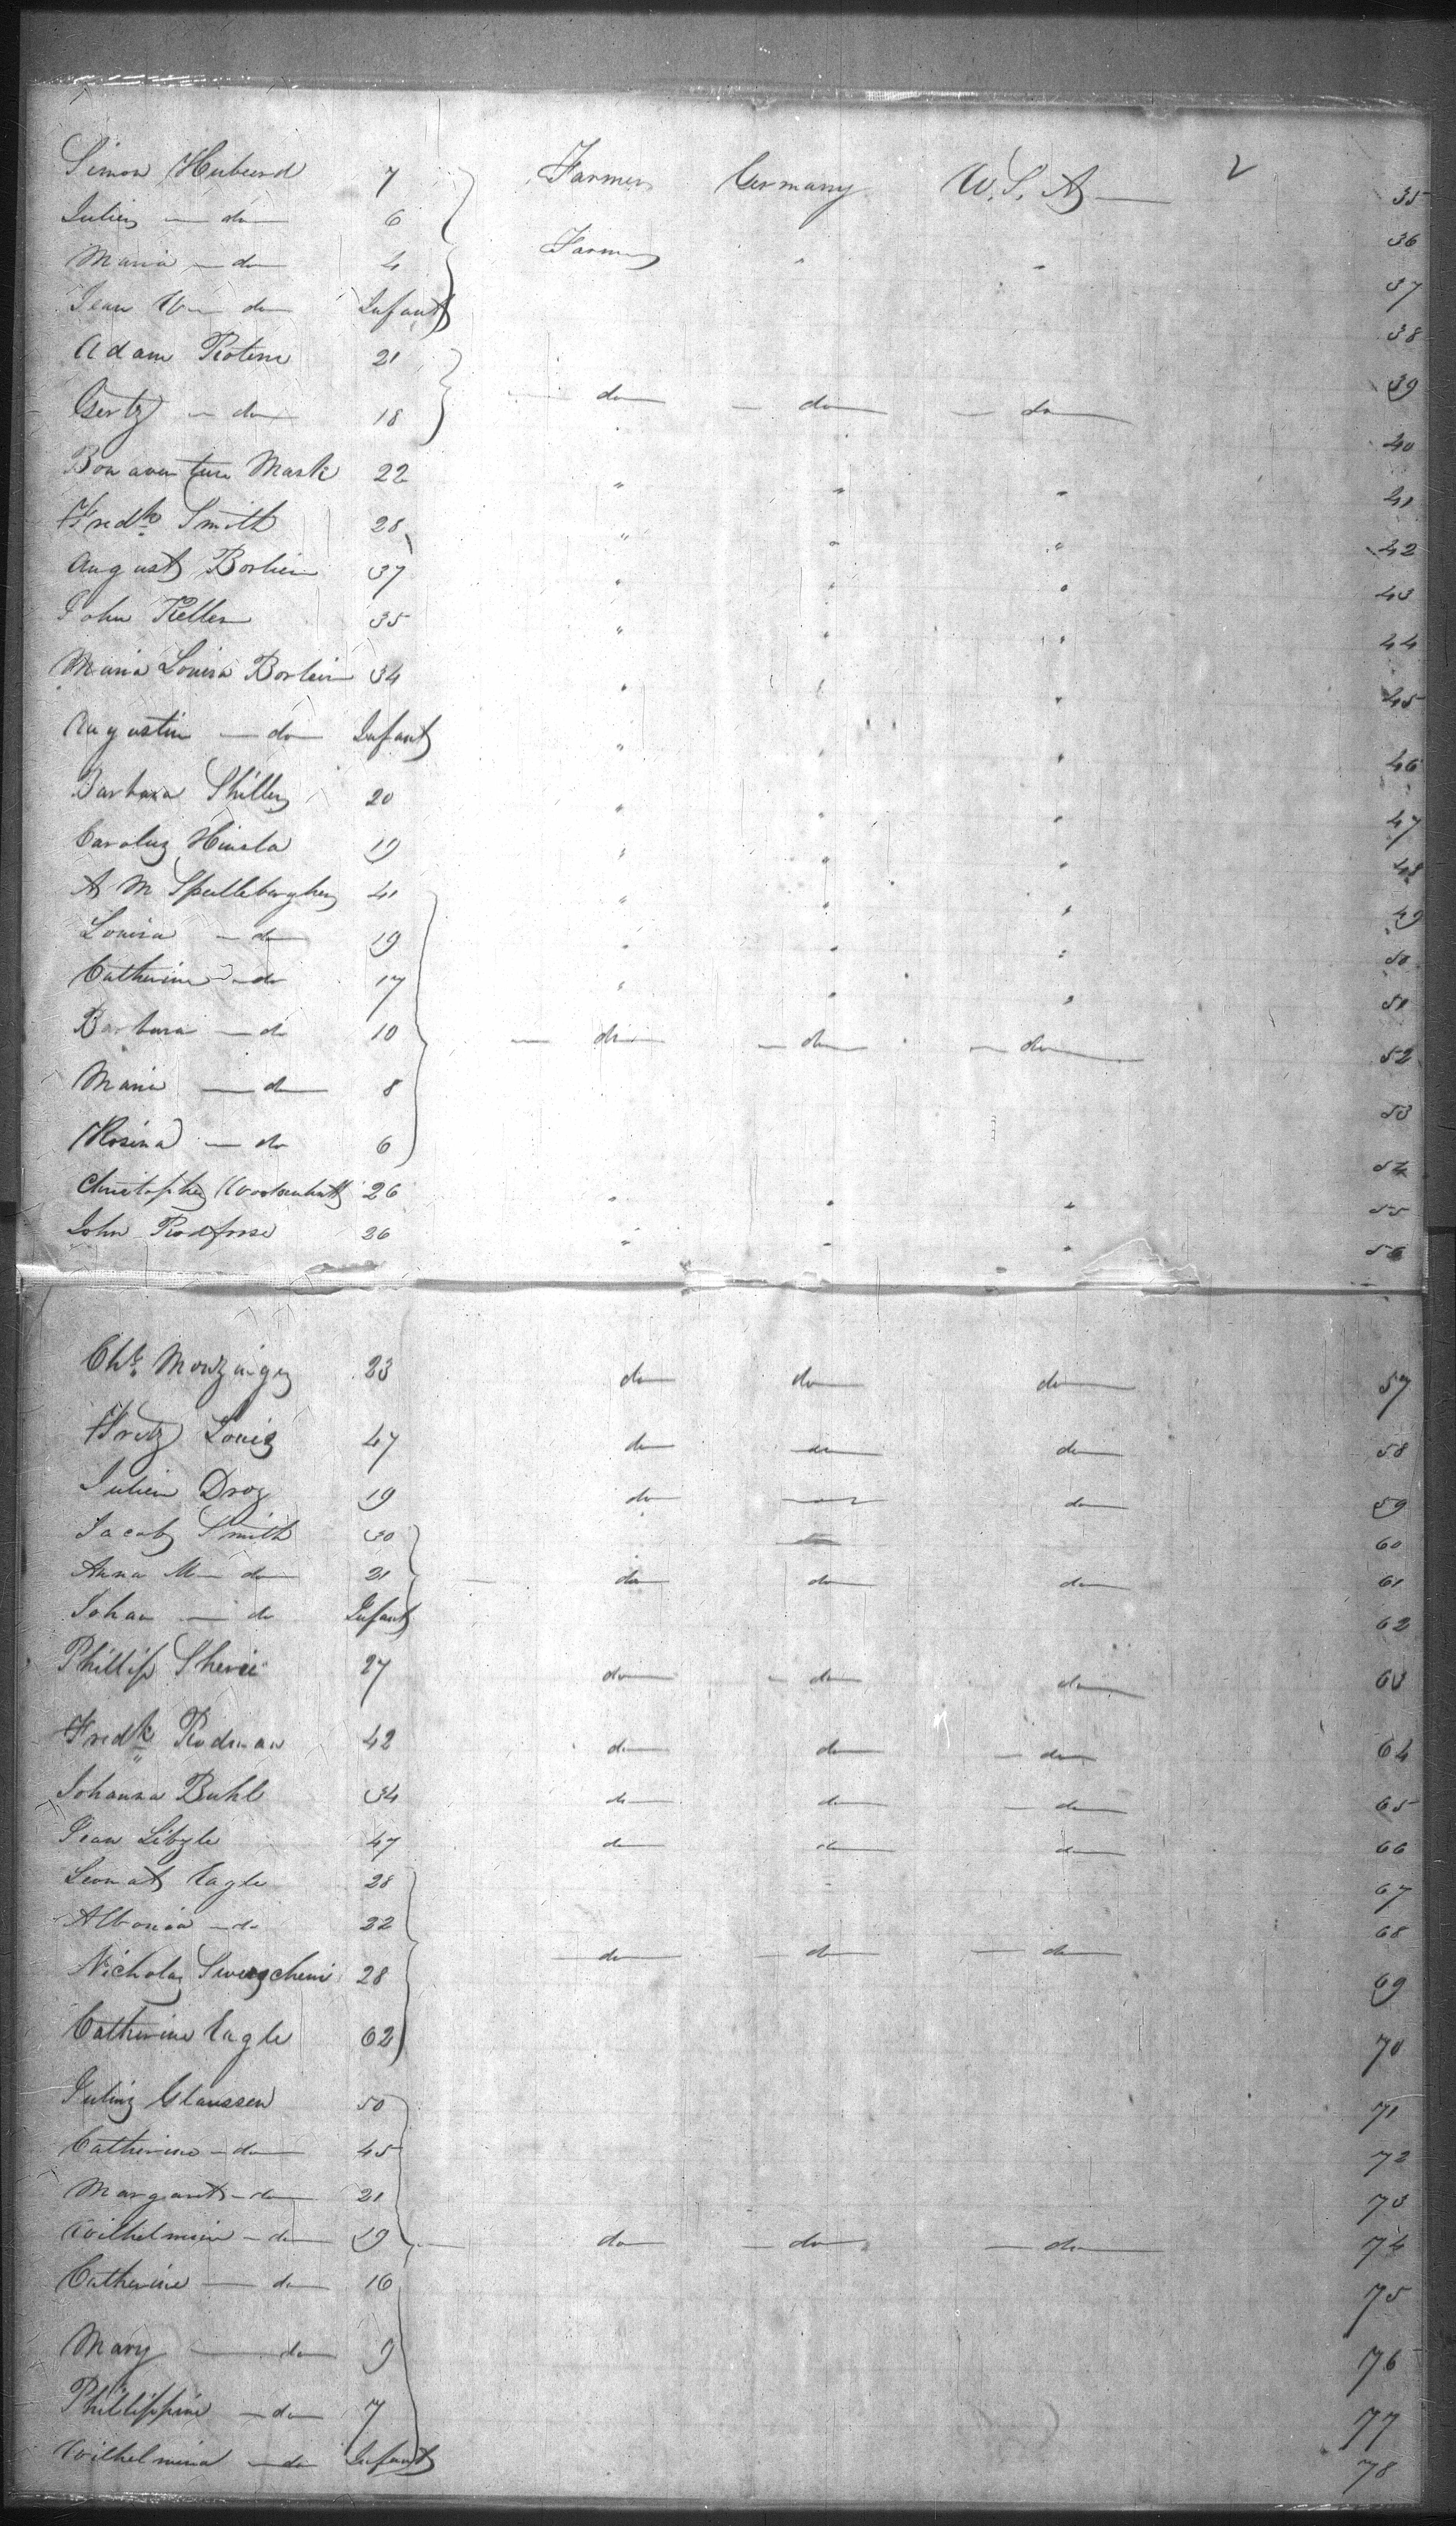 Simon Huberd 7 Farmer Germany U.S.A 35
Julien — do 6 Farmer 36
Maria — do 4 " " 37
Jean do Infant 38
Adam Rotern 21 39
Gertz — do 18 — do — do — do 40
Bonaventure Mask 22 " " " 41
Fredk Smith 28 " " " 42
August Borlien 37 " " " 43
John Keller 35 " " " 44
Maria Louisa Borlein 34 " " " 45
Augustin — do Infant " " " 46
Barbara Shiller 20 " " " 47
Carolus 19 " " " 48
A M Spulleburgher 41 " " " 49
Louisa — do 19 " " " 50
Catherine — do 17 " " " 51
Barbara — do 10 — do — do — do 52
Marie — do 8 53
Rosina — do 6 54
Christopher 26 " " " 55
John Rodfrose 26 " " " 56
Chs. Montzinger 23 do do do 57
Fritz Louis 47 do do do 58
Julien Droz 19 do do 59
Jacob Smith 30 60
Anna M — do 21 — do do do 61
Johan — do Infant 62
Phillip 27 do — do do 63
Fredk Rodman 42 do do — do 64
Johanna Buhl 34 do do — do 65
Jean Libyle 47 do do do 66
Leonat Eagle 28 67
Albonia — do 22 68
Nicholas 28 — do — do — do 69
Catherine Eagle 62 70
Julius Claussen 50 71
Catherine — do 45 72
Margaret — do 21 73
Wilhelmein — do 19 — do — do — do 74
Catherine — do 16 75
Mary — do 9 76
Phillippine — do 7 77
Wilhelmina — do Infant 78